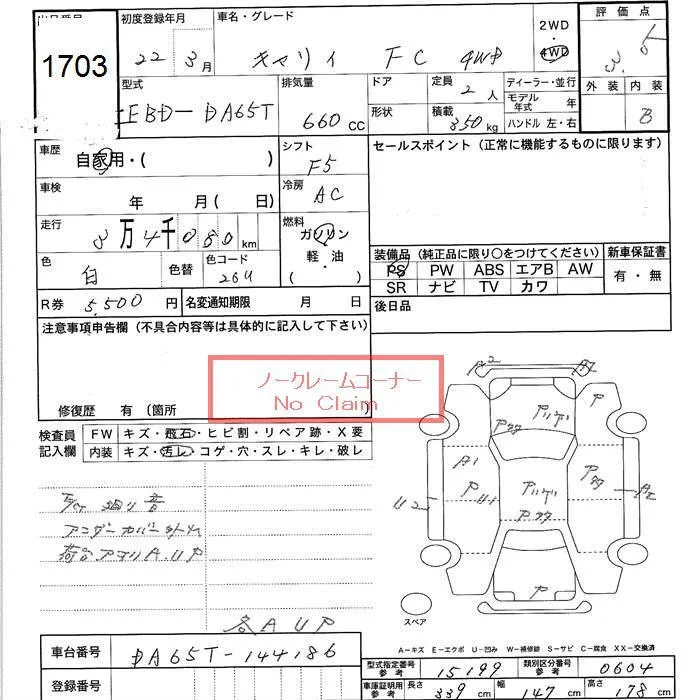 出品番号 初度登録年月 車名・グレード 2WD 評価点
1703 22年 3月 キャリイ FC 4WD 4WD 3.5
型式 排気量 ドア 定員 2人 ディーラー・並行 外装 内装
EBD-DA65T 660cc 形状 積載 350kg モデル年式 年 B
ハンドル 左・右
車歴 自家用・( ) シフト F5 セールスポイント (正常に機能するものに限ります)
車検 年 月(日) 冷房 AC
走行 3万4千080km 燃料 ガソリン
軽・油
( )
色 白 色替 色コード 26U
装備品 (純正品に限り○をつけてください) 新車保証書
PS PW ABS エアB AW 有・無
SR ナビ TV カワ
R券 5,500円 名変通知期限 月 日 後日品
注意事項申告欄 (不具合内容等は具体的に記入して下さい)
ノークレームコーナー
No Claim
修復歴 有 (箇所
検査員記入欄 FW キズ・飛石・ヒビ割・リペア跡・X要
内装 キズ・汚レ・コゲ・穴・スレ・キレ・破レ
廻り音
アンダーカバー
荷台アオリA.UP
各AUP
A2
P
Pタタ
アリゲ
A1
P
U1
U2
アリゲ
Pタタ
Pタタ
P
スペア
A-キズ E-エクボ U-凹み W-補修跡 S-サビ C-腐食 XX-交換済
車台番号 DA65T-144186
登録番号
型式指定番号 参考 15199 類別区分番号 参考 0604
車庫証明用 参考 長さ 339cm 幅 147cm 高さ 178cm